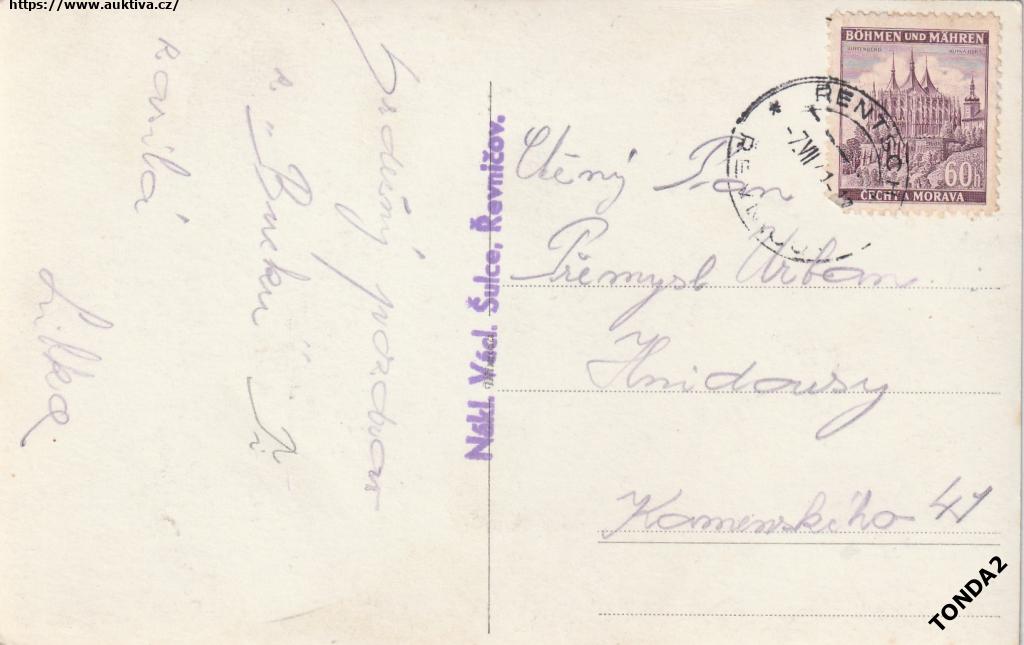 https://www.auktiva.cz/
Srdečný pozdrav
z „Bucku" Ti
zasílá
Lilka
Nákl. Václ. Šulce, Řevničov.
BÖHMEN UND MÄHREN
60h
ČECHY A MORAVA
RENTSCH
-7.VII
Ctěný Pan
Přemysl Urban
Hnidousy
Komenského 41
TONDA2